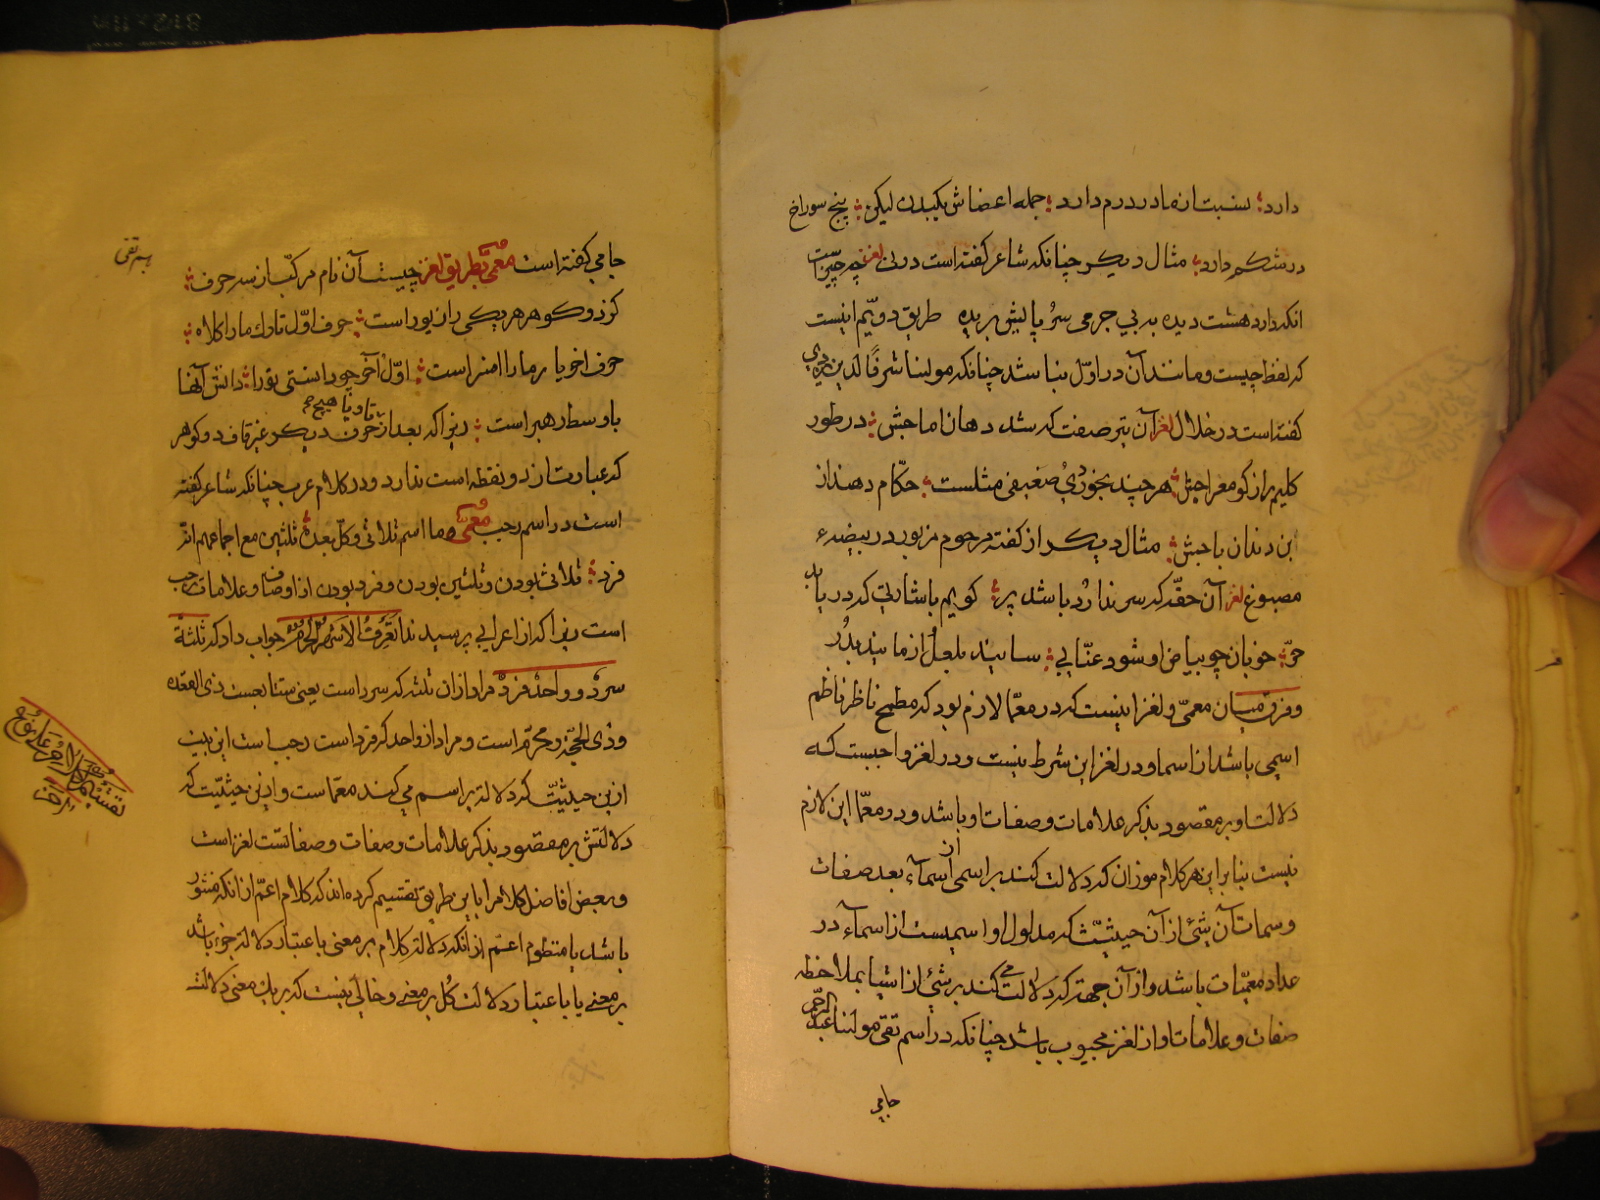 دارد؛ سنبت از مادر درم دارد؛ جمله اعضاش بکبدن لیکن؛ پنج سوراخ
در شکم دارد؛ مثال دیکر چنانکه شاعر کفته است در نی لغز چه چیزاست
انکه دارد هشت دیده بدبی جرمی سر پالیش بریده طریق دویّم اینست
که لفظ چیست و مانند آن در اوّل نباشد چنانکه مولنا شرف الدین یزدی
کفته است در خلال لغز آن تیر صفت که شد دهان اماجش؛ در طور
کلیم راز کو معراجش؛ هر چند بخوردی ضعیفی مثلست؛ حکّام دهند از
بن دندان باجش؛ مثال دیکر از کفته مرحوم مزبور در بیضهء
مصبوغ لغز آن حقّه که سر ندارد باشد پر؛ کویم باشارتی که دریابد
حرّ؛ خوبان چو بیاض او شود عنّابی؛ سایند بلعل ازمایند بدُر
وفرق میان معمّی ولغز اینست که در معمّا لازم بود که مطمح ناظر ناظم
اسمی باشد از اسما و در لغز این شرط نیست و در لغز واجبست که
دلالت او بر مقصود بذکر علامات وصفات او باشد و در معمّا این لازم
نیست بنابراین هر کلام موزان که دلالت کند بر اسمی از اسمآء بعد صفات
وسمات آن شئ از آن حیثیّت که مدلول او اسمیست از اسمآء در
عداد معمّیات باشد و از آن جهة که دلالت می کند بر شئ از اشیا بملاحظه
صفات وعلامات او از لغز محبوب باشد چنانکه در اسم تقی مولنا عبد الرّحمن
جامی
جامی کفته است معمّی بطریق لغز چیست آن نام مرکّب از سه حرف؛
بسم تقی
کز دو کوهر هر یکی ران یور است؛ حرف اوّل تارك ما را کلاه؛
حرف اخر پا رما را افسر است؛ اوّل آخر چو دانستی تورا؛ دانش آنها
باوسط رهبر است؛ زیرا که بعد از حرف دیکر غیر قاف دو کوهر
تا و یا هیچ
که عبارت از دو نقطه است ندارد و در کلام عرب چنانکه شاعر کفته
است در اسم رجب معمّی وما اسم ثلاثی وکلّ بعدهٔ ثلثین مع اجماعهم انّه
فرد؛ ثلاثی بودن وثلثین بودن وفرد بودن از اوصاف وعلامات رجب
است زیرا که از اعرابی پرسیدند اتعرف الاشهر الحرم جواب داد که ثلثة
سرد وواحد فرد مراد از آن ثلثه که سرد است یعنی متتابعست ذی القعده
وذی الحجّة ومحرّم است ومراد از واحد که فرد است رجب است این بیت
ازین حیثیّت که دلالت بر اسم می کند معمّاست وازین حیثیّت که
دلالتش بر مقصود بذکر علامات وصفات وصفاتست لغز است
وبعض افاضل کلام را باین طریق تقسیم کرده اند که کلام اعمّ از انکه منثور
باشد یا منظوم اعمّ از انکه دلالت کلام بر معنی باعتبار دلالت جزء باشد
بر معنی یا باعتبار دلالت کُل بر معنی وخالی نیست که بر یك معنی دلالت
تقسیم کلام
آخر